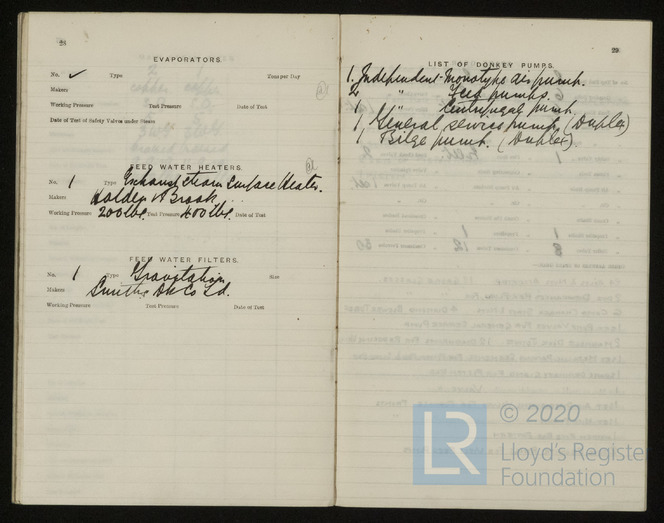 28
EVAPORATORS.
No. ✓ Type Tons per Day
Makers
Working Pressure Test Pressure Date of Test
Date of Test of Safety Valves under Steam
FEED WATER HEATERS.
No. 1 Type Exhaust steam Surface Heater.
Makers Holden & Brook
Working Pressure 200 lbs. Test Pressure 400 lbs. Date of Test
FEED WATER FILTERS.
No. 1 Type Gravitation Size
Makers Co Ld.
Working Pressure Test Pressure Date of Test
29
LIST OF DONKEY PUMPS.
1. Independent Monotype air pump.
2 " Feed pumps.
1 " Centrifugal pump
1 General service pump (Duplex)
1 Bilge pump. (Duplex)
LR © 2020
Lloyd's Register
Foundation